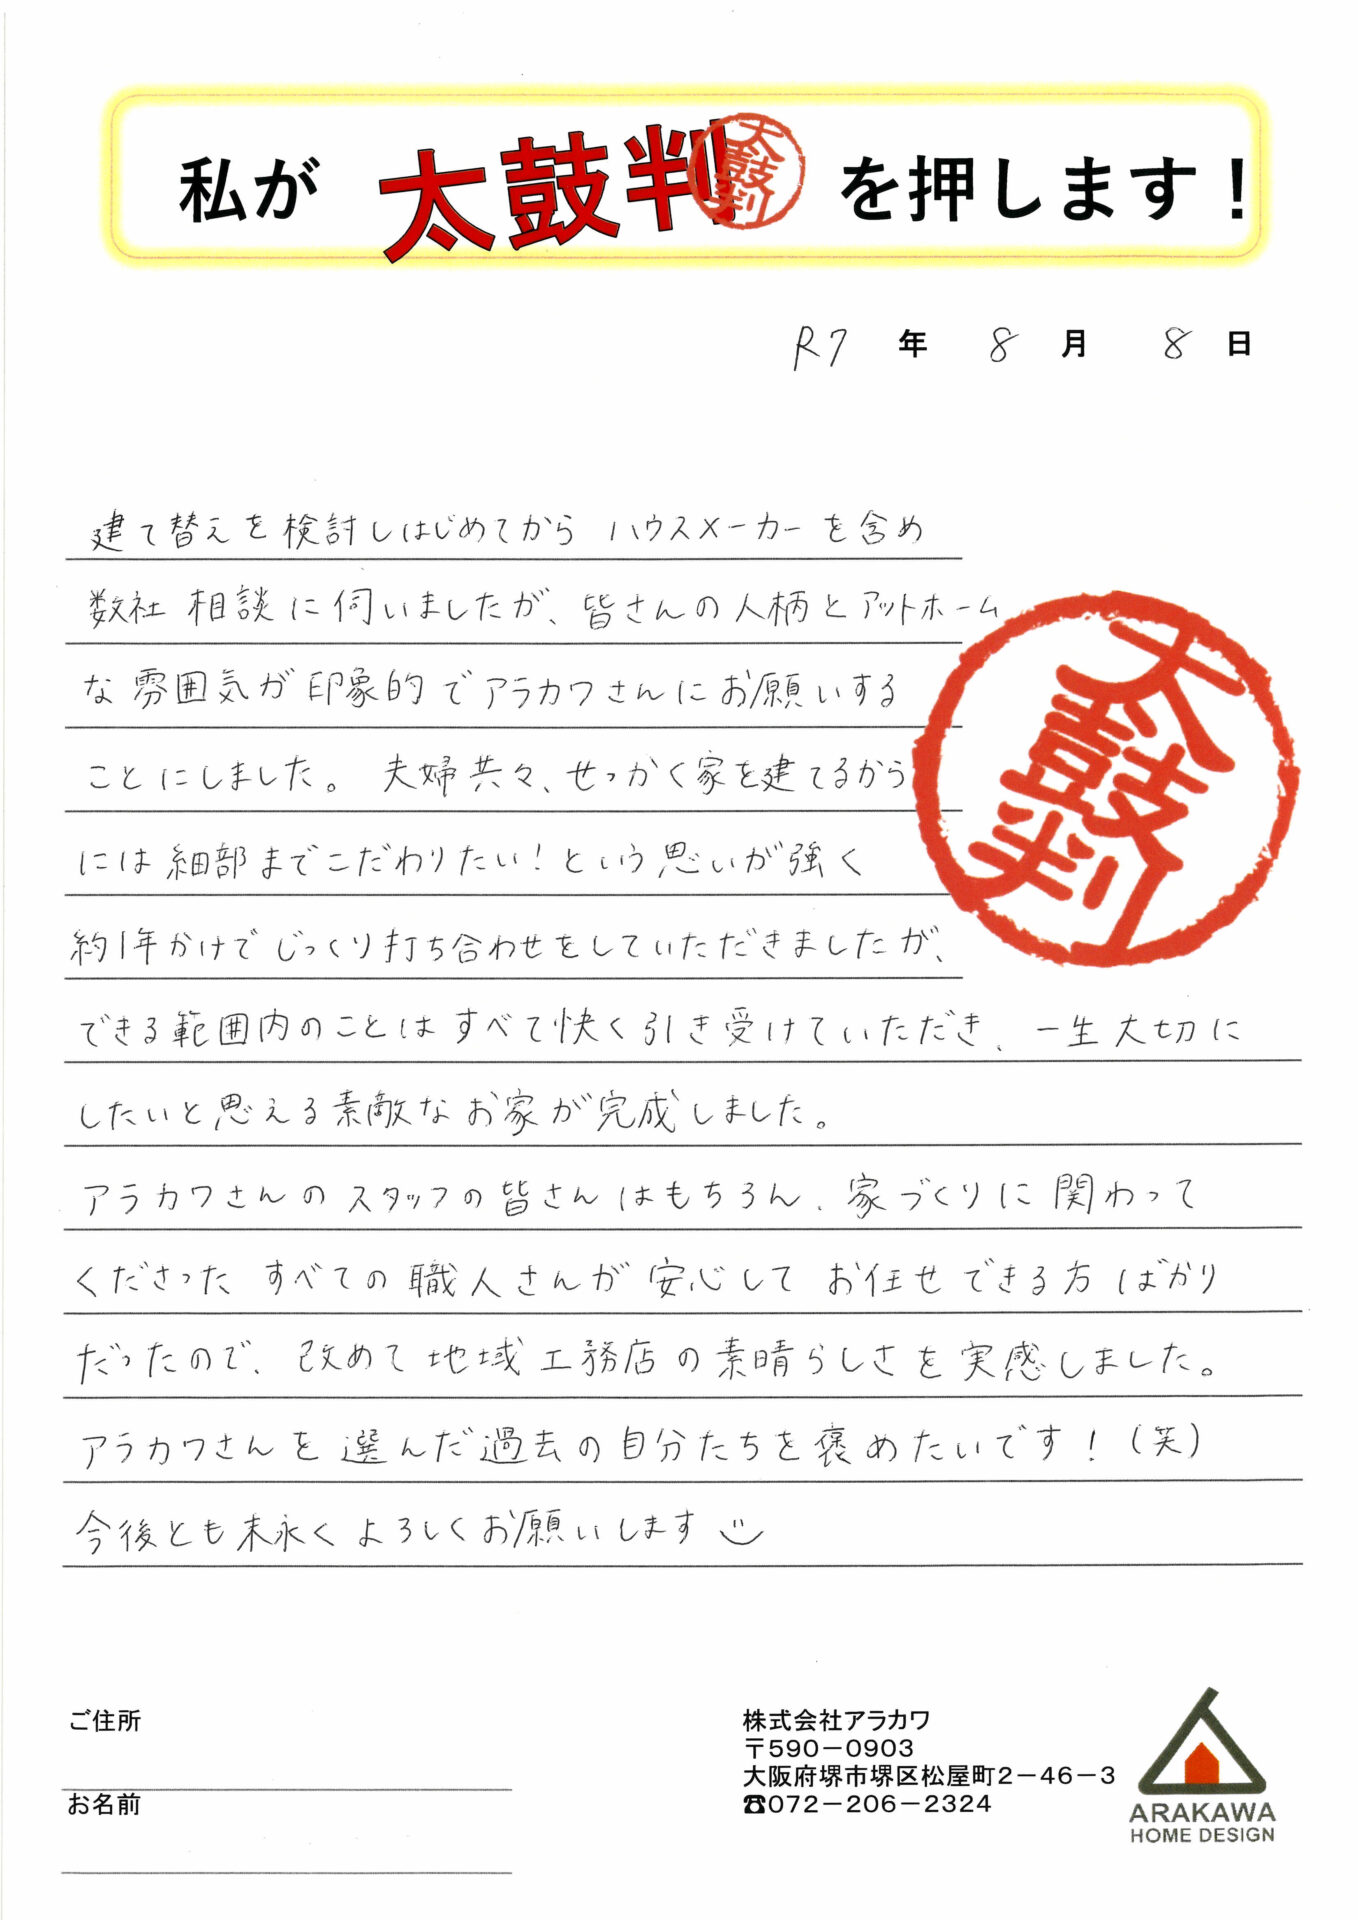 私が 太鼓判 太鼓判 を押します！
R7 年 8 月 8 日
建て替えを検討しはじめてから ハウスメーカーを含め
数社 相談に伺いましたが、皆さんの人柄とアットホーム
な雰囲気が印象的でアラカワさんにお願いする
ことにしました。 夫婦共々、せっかく家を建てるから
には細部までこだわりたい！という思いが強く
約1年かけでじっくり打ち合わせをしていただきましたが、
できる範囲内のことはすべて快く引き受けていただき、一生大切に
したいと思える素敵なお家が完成しました。
アラカワさんのスタッフの皆さんはもちろん、家づくりに関わって
くださった すべての職人さんが安心して お任せできる方 ばかり
だったので、改めて地域工務店の素晴らしさを実感しました。
アラカワさんを選んだ過去の自分たちを褒めたいです！（笑）
今後とも末永くよろしくお願いします
太鼓判
ご住所
お名前
株式会社アラカワ
〒590－0903
大阪府堺市堺区松屋町2－46－3
☎072－206－2324
ARAKAWA
HOME DESIGN